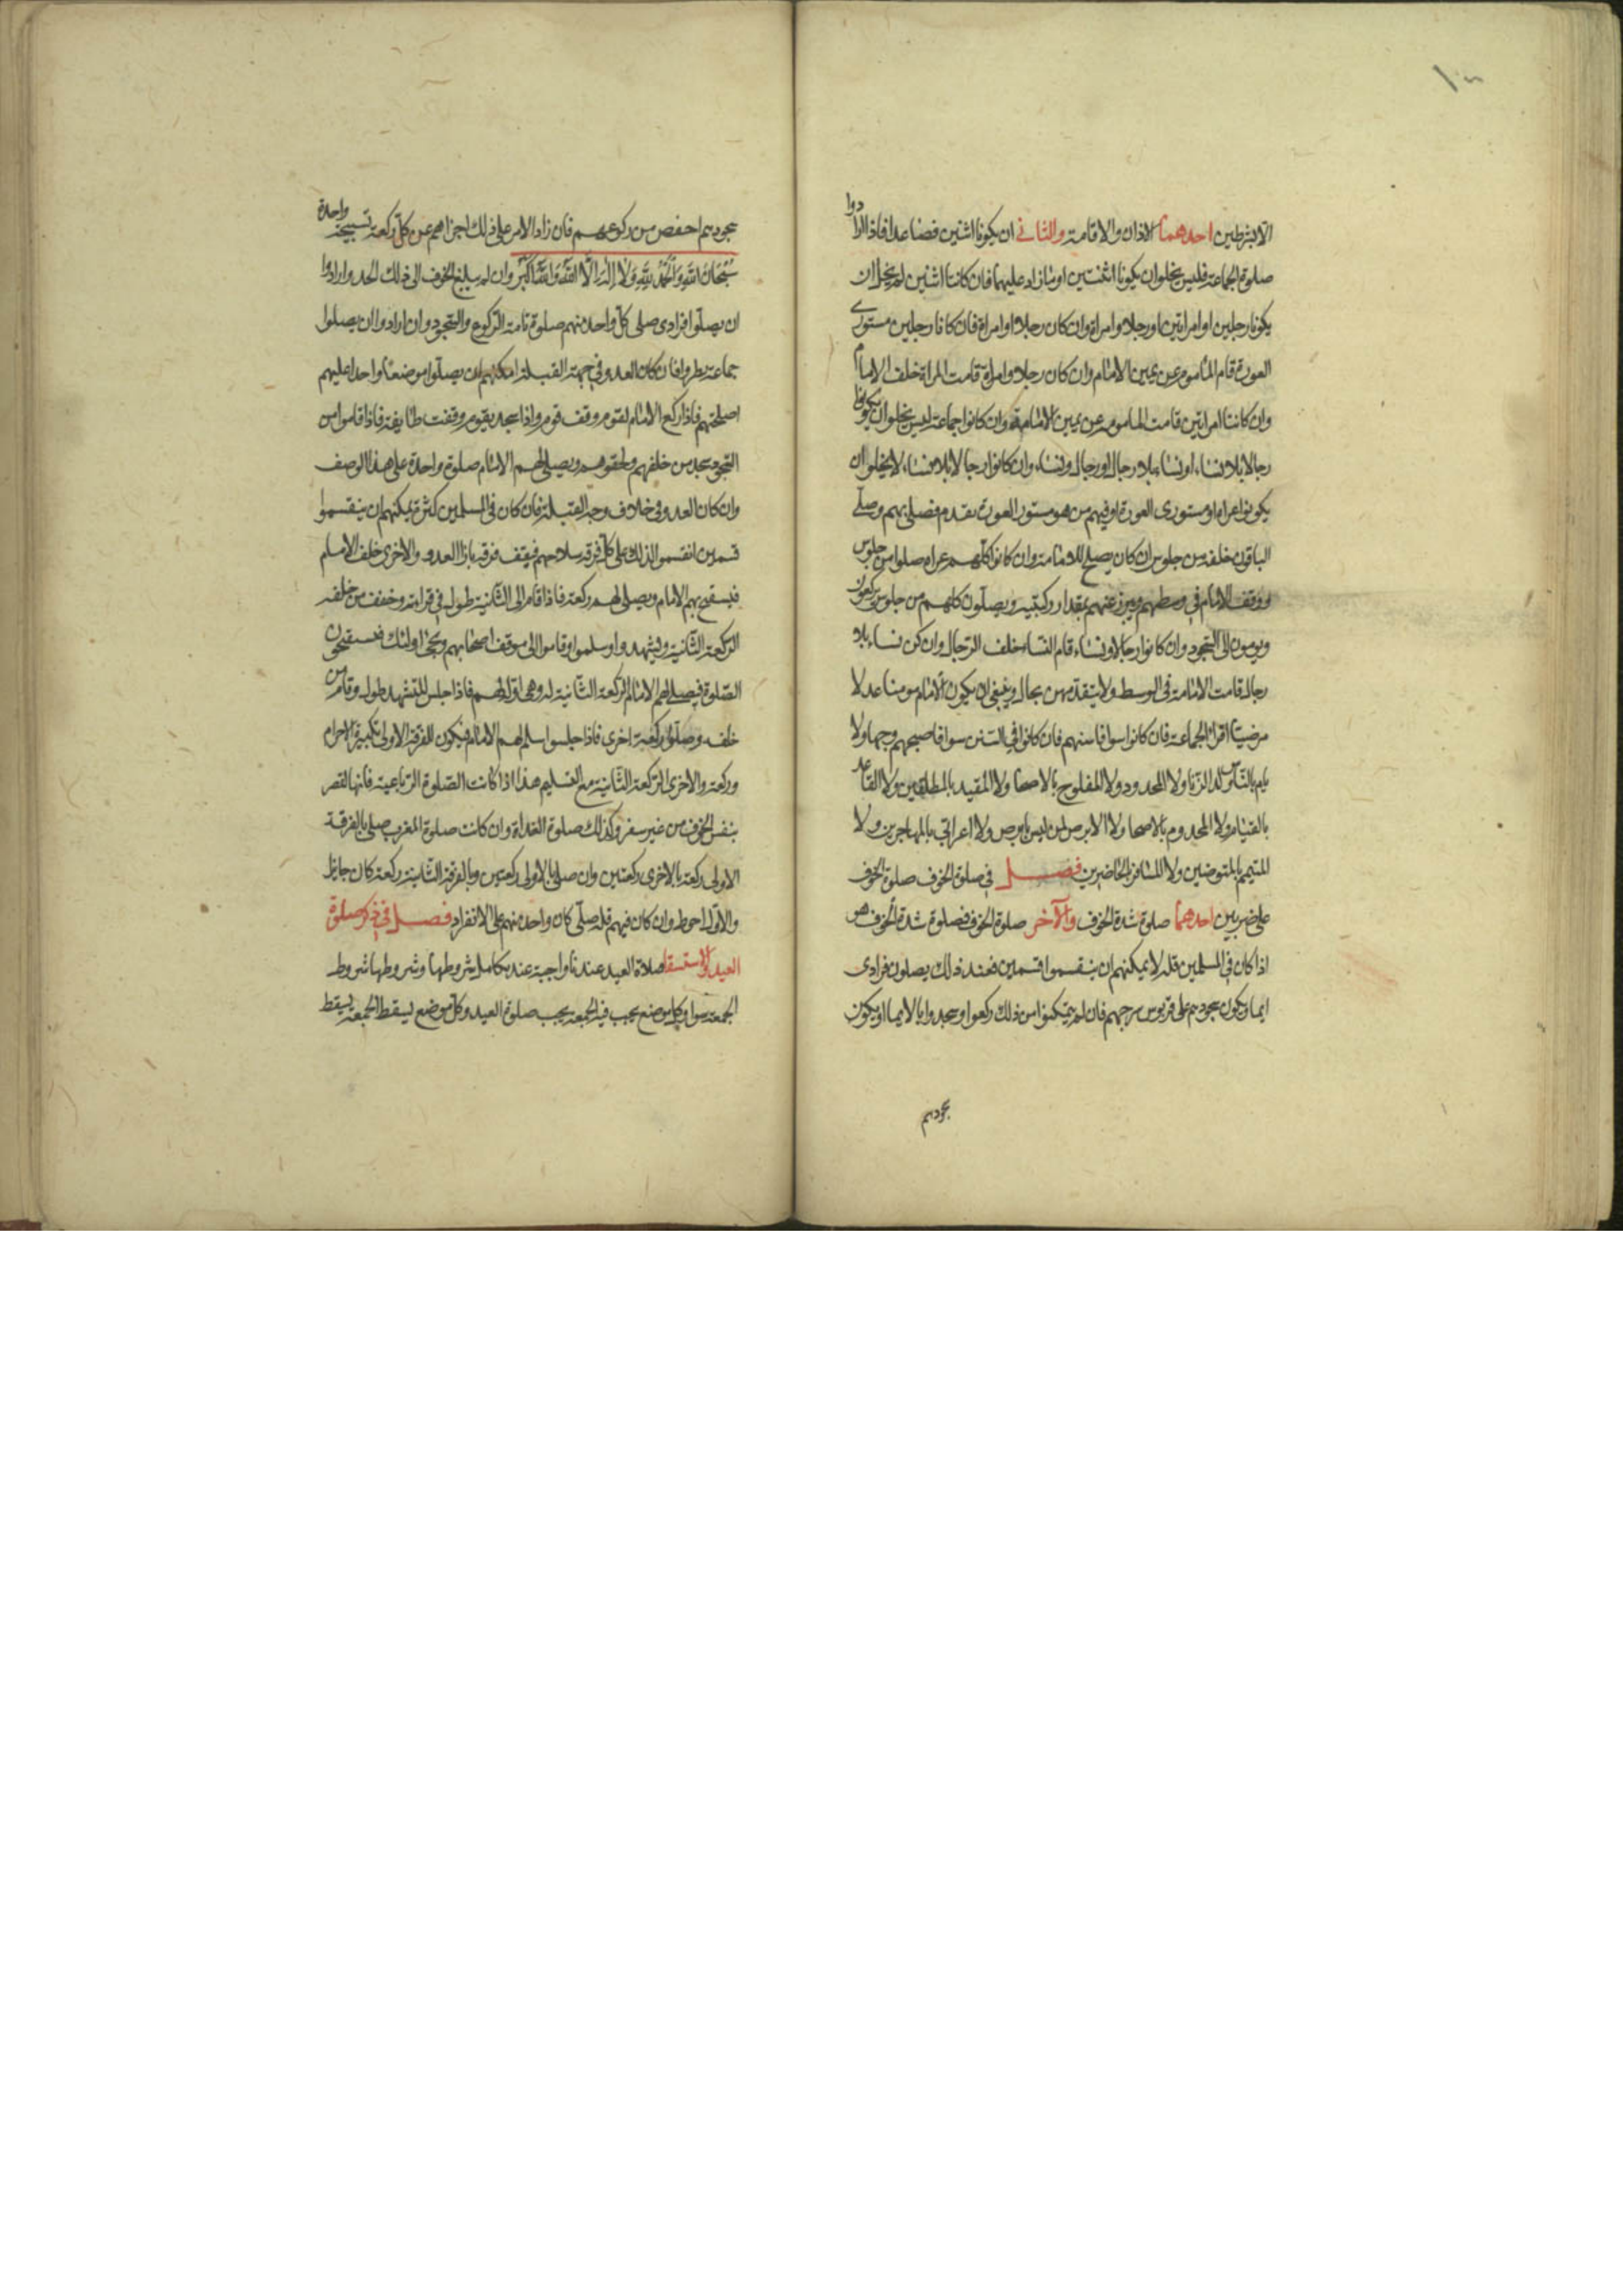 الا بشرطين احدهما الاذان والاقامة والثاني ان يكونا اثنين فصاعدا فاذا ارادوا
صلوة الجماعة فليس يخلوا ان يكونا اثنتين او ما زاد عليهما فان كانا اثنين لم يخل ان
يكونا رجلين او امراتين او رجلا وامراة وان كان رجلا او امراة فان كانا رجلين مستوري
العورة قام الماموم عن يمين الامام وان كان رجلا وامراة قامت المراة خلف الامام
وان كانتا امراتين قامت الماموم عن يمين الامامة وان كانوا جماعة ليس يخلوا ان يكونوا
رجالا بلا نساء او نساء بلا رجال او رجال ونساء وان كانوا رجالا بلا نساء لا يخلو ان
يكونوا عراة او مستوري العورة او فيهم من هو مستور العورة تقدم فصلى بهم وصلى
الباقون خلفه من جلوس ان كان يصلح للامامة وان كانوا كلهم عراة صلوا من جلوس
ووقف الامام في وسطهم ويبرز عنهم بمقدار ركبتيه ويصلون كلهم من جلوس يركعون
ويومون الى السجود وان كانوا رجالا ونساء قام النساء خلف الرجال وان كن نساء بلا
رجال قامت الامامة في الوسط ولا يتقدمهن بحال وينبغي ان يكون الامام مومنا عدلا
مرضيا اقرا الجماعة فان كانوا سوا فاسنهم فان كانوا في السن سوا فاصبحهم وجها ولا
يام بالناس ولد الزنا ولا المحدود ولا المفلوج بالاصحا ولا المقيد بالمطلقين ولا القاعد
بالقيام ولا المجذوم بالاصحا ولا الابرص لمن ليس بابرص ولا اعرابي بالمهاجرين ولا
المتيمم بالمتوضين ولا المسافر بالحاضرين فصل في صلوة الخوف صلوة الخوف
على ضربين احدهما صلوة شدة الخوف والاخر صلوة الخوف فصلوة شدة الخوف هو
اذا كان في المسلمين قلة لا يمكنهم ان ينقسموا قسمين فعند ذلك يصلون فرادى
ايما ويكون سجودهم على قربوس سرجهم فان لم يتمكنوا من ذلك ركعوا وسجدوا بالايما ويكون
سجودهم
سجودهم اخفض من ركوعهم فان زاد الامر على ذلك اجزاهم عن كل ركعة تسبيحة واحدة
سُبْحَانَ اللَّهِ وَالْحَمْدُ لِلَّهِ وَلَا إِلَهَ إِلَّا اللَّهُ وَاللَّهُ أَكْبَرُ وان لم يبلغ الخوف الى ذلك الحد وارادوا
ان يصلوا فرادى صلى كل واحد منهم صلوة تامة الركوع والسجود وان ارادوا ان يصلوا
جماعة نظروا فان كان العدو في جهة القبلة امكنهم ان يصلوا موضعا واحدا عليهم
اسلحتهم فاذا ركع الامام لقوم وقف قوم واذا سجد بقوم وقفت طايفة فاذا قاموا من
السجود سجد من خلفهم ولحقوهم ويصلى لهم الامام صلوة واحدة على هذا الوصف
وان كان العدو في خلاف وجه القبلة فان كان في المسلمين كثرة يمكنهم ان ينقسموا
قسمين انقسموا لذلك على كل فرقة سلاحهم فيقف فرقة بازا العدو والاخرى خلف الامام
فيستفتح بهم الامام ويصلى لهم ركعة فاذا قام الى الثانية طول في قراءته وخفف من خلفه
الركعة الثانية وليشهدوا وسلموا وقاموا الى موقف اصحابهم ويجي اولئك فيستفتحون
الصلوة فيصلي لهم الامام الركعة الثانية له وهي اولة لهم فاذا جلس للتشهد طول وقام من
خلفه وصلوا ركعة اخرى فاذا جلسوا سلم لهم الامام فيكون للفرقة الاولى تكبيرة الاحرام
وركعة والاخرى الركعة الثانية مع التسليم هذا اذا كانت الصلوة الرباعية فانها تقصر
بنفس الخوف من غير سفر وكذلك صلوة الغداة وان كانت صلوة المغرب صلى بالفرقة
الاولى ركعة بالاخرى ركعتين وان صلى بالاولى ركعتين وبالفرقة الثانية ركعة كان جايزا
والاول احوط وان كان فيهم قلة صلى كان واحد منهم على الانفراد فصل في ذكر صلوة
العيد والاستسقا صلاة العيد عندنا واجبة عند تكامل شروطها وشروطها شروط
الجمعة سوا وكل موضع يجب فيه الجمعة يجب صلوة العيد وكل موضع يسقط الجمعة يسقط